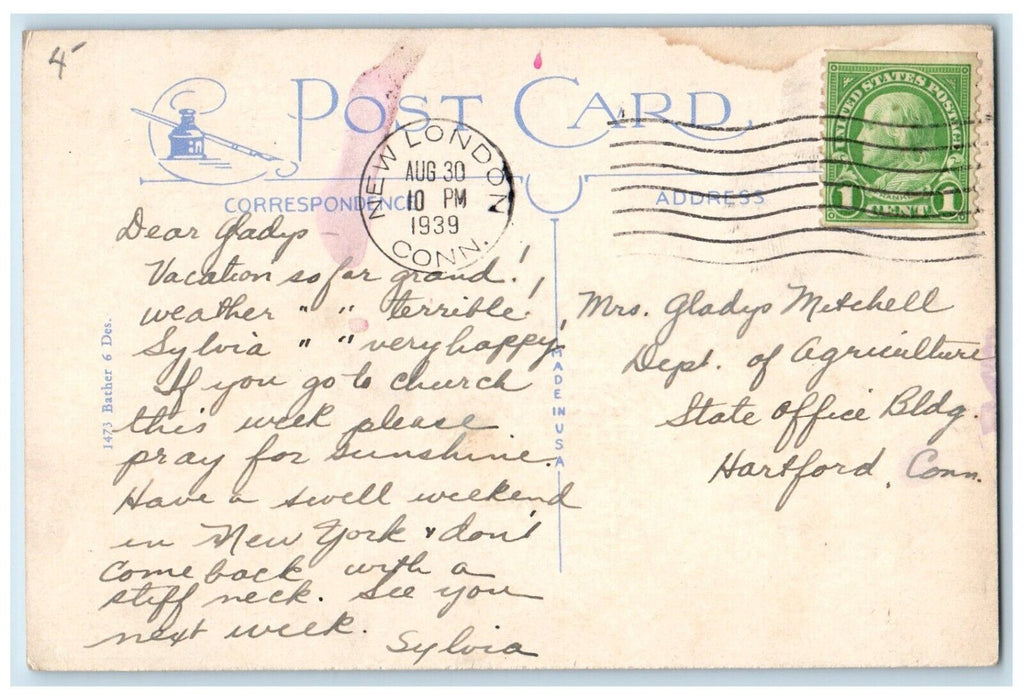 4
POST CARD
CORRESPONDENCE
ADDRESS
NEW LONDON
AUG 30
10 PM
1939
CONN.
UNITED STATES POSTAGE
1 CENT 1
Dear Gladys —
Vacation so far grand!
weather " " terrible!
Sylvia " " very happy!
If you go to church
this week please
pray for sunshine.
Have a swell weekend
in New York & don't
come back with a
stiff neck. See you
next week.
Sylvia
1473 Bather 6 Des.
MADE IN USA
Mrs. Gladys Mitchell
Dept. of Agriculture
State Office Bldg.
Hartford, Conn.